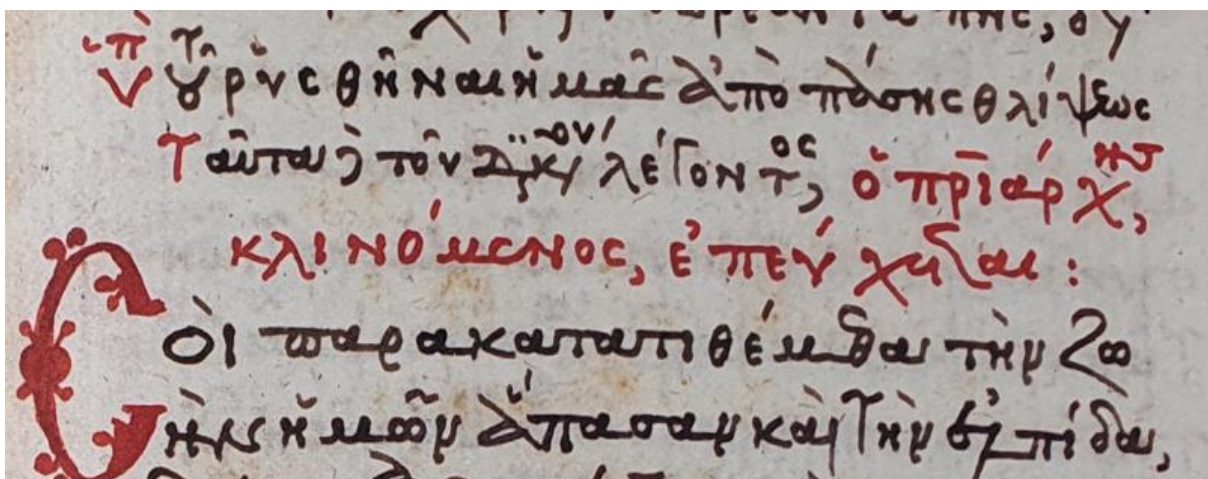 Ὑπ τοῦ ῥυσθῆναι ἡμᾶς ἀπὸ πάσης θλίψεως
Ταῦτα τοῦ λέγοντος, ὁ πριάρχης
κλινόμενος, ἐπεύχεται:
Σοὶ παρακατατιθέμεθα τὴν ζω
ὴν ἡμῶν ἅπασαν καὶ τὴν ἐλπίδα,